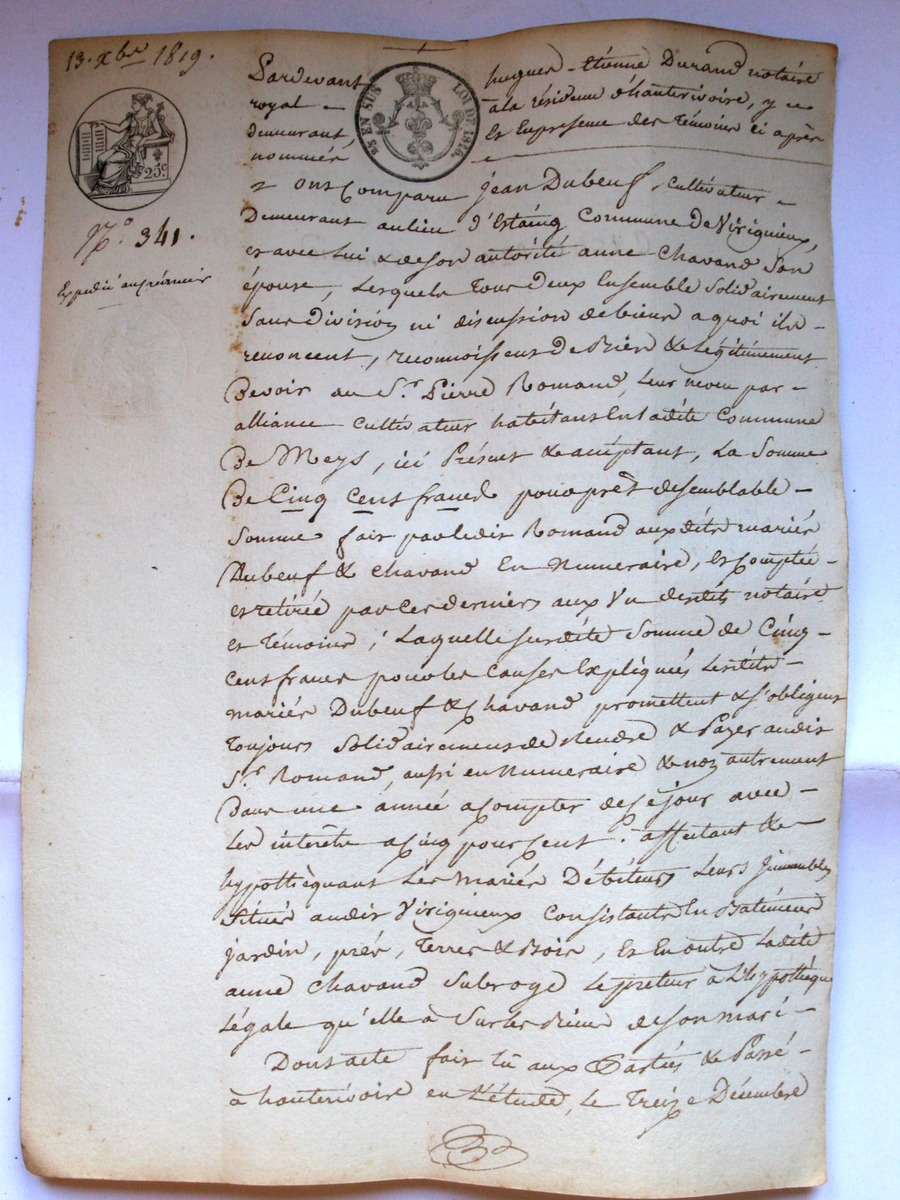 13. Xbre 1819.
25 EN SUS
LOI DE 1816.
25c
No. 341.
Expédié au créancier
Pardevant hugues-étienne Durand notaire
royal à la résidence d'hauterivoire, y
demeurant Et Enpresence des témoins ci après
nommés
ont Comparu jean Dubeuf, cultivateur
Demeurant aulieu d'Estaing Commune DeVirignieux,
et avec lui & de son autorité anne Chavand Son
épouse, Lesquels Tous Deux Ensemble Solidairement
Sans Division ni discussion de biens a quoi ils
renoncent, reconnoissent De Bien & Légitimement
Devoir au Sr. Pierre Romand, Leur neveu par
alliance cultivateur habitant En Ladite Commune
De Meys, ici Présent & acceptant, La Somme
De Cinq Cent francs pour prêt de semblable
Somme fait par ledit Romand aux dits mariés
Dubeuf & Chavand En Numeraire, Et Comptée
et retirée par Ces derniers aux Vu desdits notaire
et Témoins; Laquelle susdite Somme de Cinq
Cent francs pour les Causes Expliquées Lesdits
mariés Dubeuf & Chavand promettent & s'obligent
Toujours Solidairement de Rendre & Payer audit
Sr. Romand, aussi en Numeraire & non autrement
Dans une année a Compter de Ce jour avec
Les interêts a Cinq pour Cent. affectant &
hypothèquant Les Mariés Débiteurs Leurs Immeubles
Situés audit Virignieux Consistants En Batiments
jardin, prés, Terres & Bois, Et En outre Ladite
anne Chavand Subroge Le preteur à L'hypothèque
Légale qu'elle à Sur Les Biens de son mari
Dont acte fait Lu aux Parties & Passé
à hauterivoire en L'étude, Le Treize Décembre